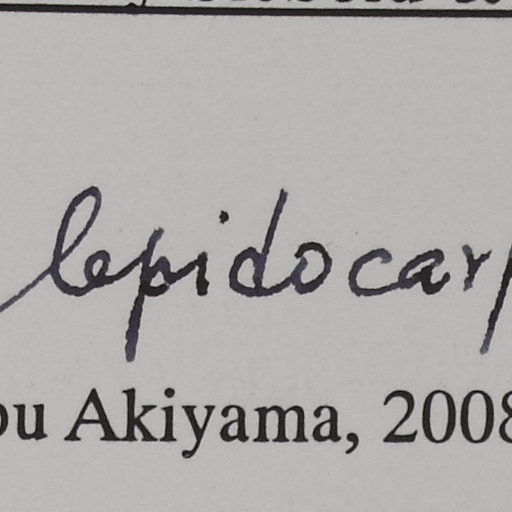 lepidocarp
ou Akiyama, 2008